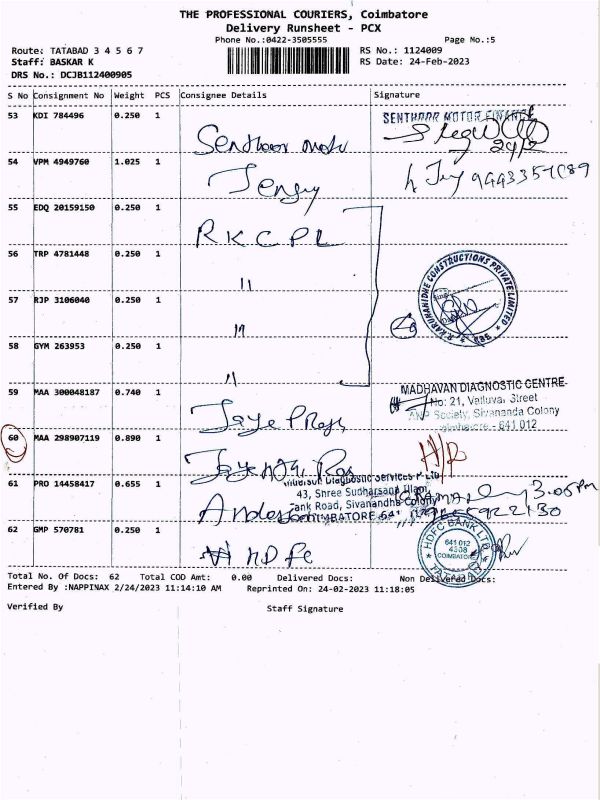 THE PROFESSIONAL COURIERS, Coimbatore
Delivery Runsheet - PCX
Phone No.:0422-3505555
Page No.:5
Route: TATABAD 3 4 5 6 7
RS No.: 1124009
Staff: BASKAR K
RS Date: 24-Feb-2023
DRS No.: DCJB112400905
S No Consignment No Weight PCS Consignee Details Signature
53 KDI 784496 0.250 1
SENTHOOR MOTOR FINANCE
24/2
54 VPM 4949760 1.025 1
55 EDQ 20159150 0.250 1
RKCPL
56 TRP 4781448 0.250 1
"
57 RJP 3106040 0.250 1
"
58 GYM 263953 0.250 1
"
R.KARUNANIDHI CONSTRUCTIONS PRIVATE LIMITED
59 MAA 300048187 0.740 1
MADHAVAN DIAGNOSTIC CENTRE
No: 21, Valluvar Street
ANP Society, Sivananda Colony
Coimbatore - 641 012
60 MAA 298907119 0.890 1
61 PRO 14458417 0.655 1
Diagnostic Services P Ltd
43, Shree Sudharsana Illam,
Tank Road, Sivanandha Colony
COIMBATORE 641
3.05pm
62 GMP 570781 0.250 1
HDFC
HDFC BANK LTD
641 012
4308
COIMBATORE
TATABAD
Total No. Of Docs: 62 Total COD Amt: 0.00 Delivered Docs: Non Delivered Docs:
Entered By :NAPPINAX 2/24/2023 11:14:10 AM Reprinted On: 24-02-2023 11:18:05
Verified By Staff Signature